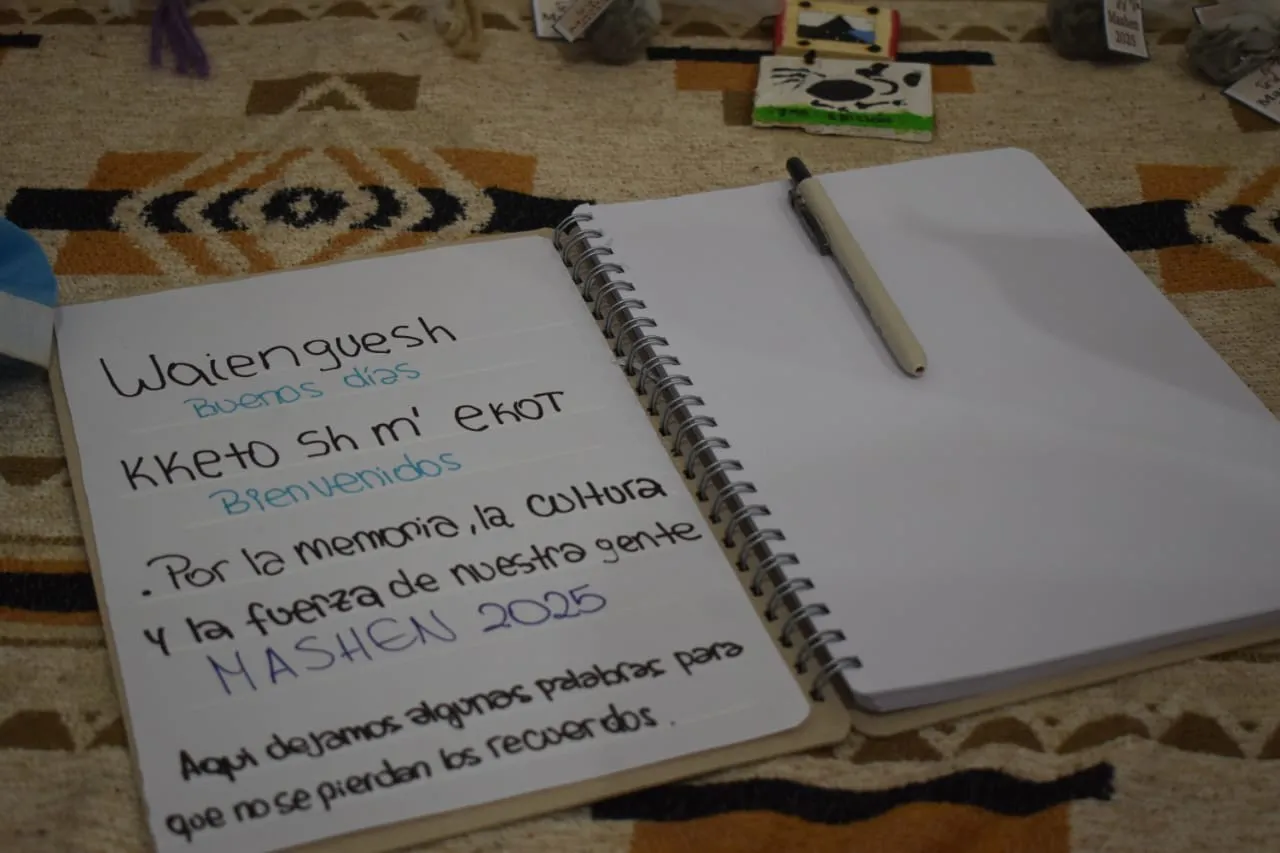 Mashen
2025
Waienguesh
Buenos días
KKeto Sh m' ekot
Bienvenidos
. Por la memoria, la cultura
y la fuerza de nuestra gente
MASHEN 2025
Aqui dejamos algunas palabras para
que no se pierdan los recuerdos.